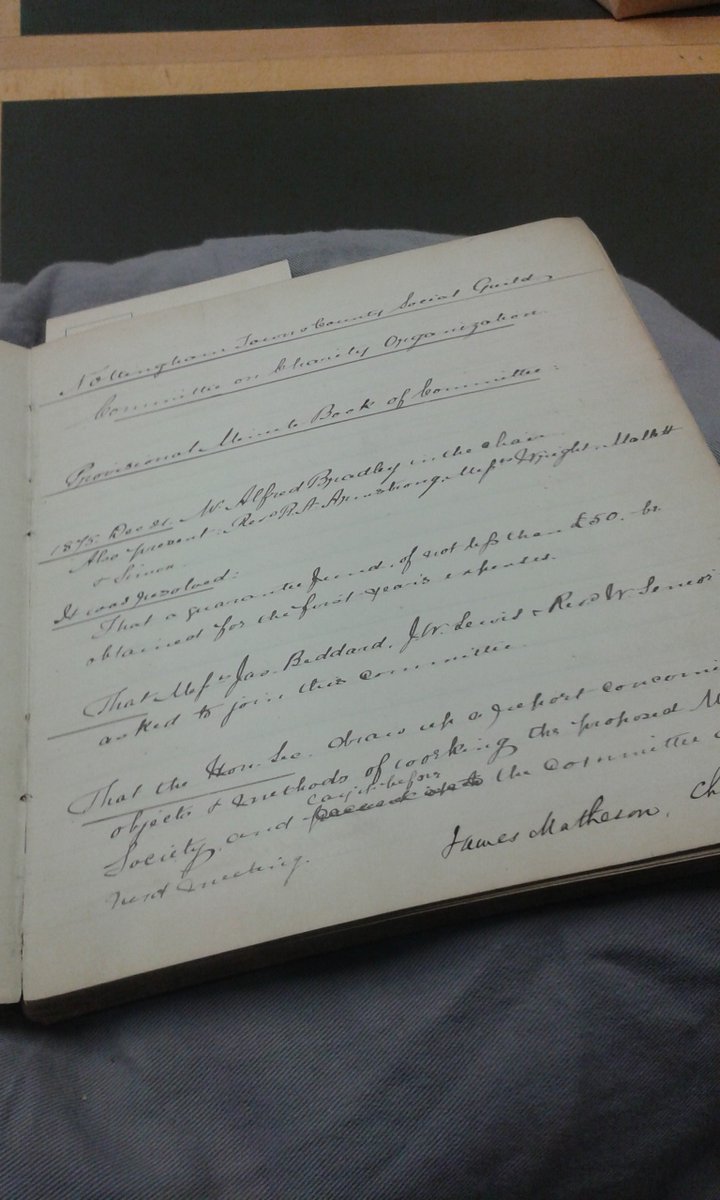 Nottingham Town & County Social Guild,
Committee on Charity Organization.
Provisional Minute Book of Committee:
1875 Dec 21. Mr Alfred Bradley in the chair
Also present: Revd R A Armstrong. Messrs Wright. Mallett
& Simon.
It was resolved:
That a guarantee fund, of not less than £50. be
obtained for the first year's expenses.
That Messrs Jas. Beddard. J.W. Lewis & Revd W. Senior
asked to join this committee.
That the Hon. Sec. draw up a report concerni
objects & methods of working the proposed M
lay it before
Society, and the committee
next meeting.
James Matheson, Ch